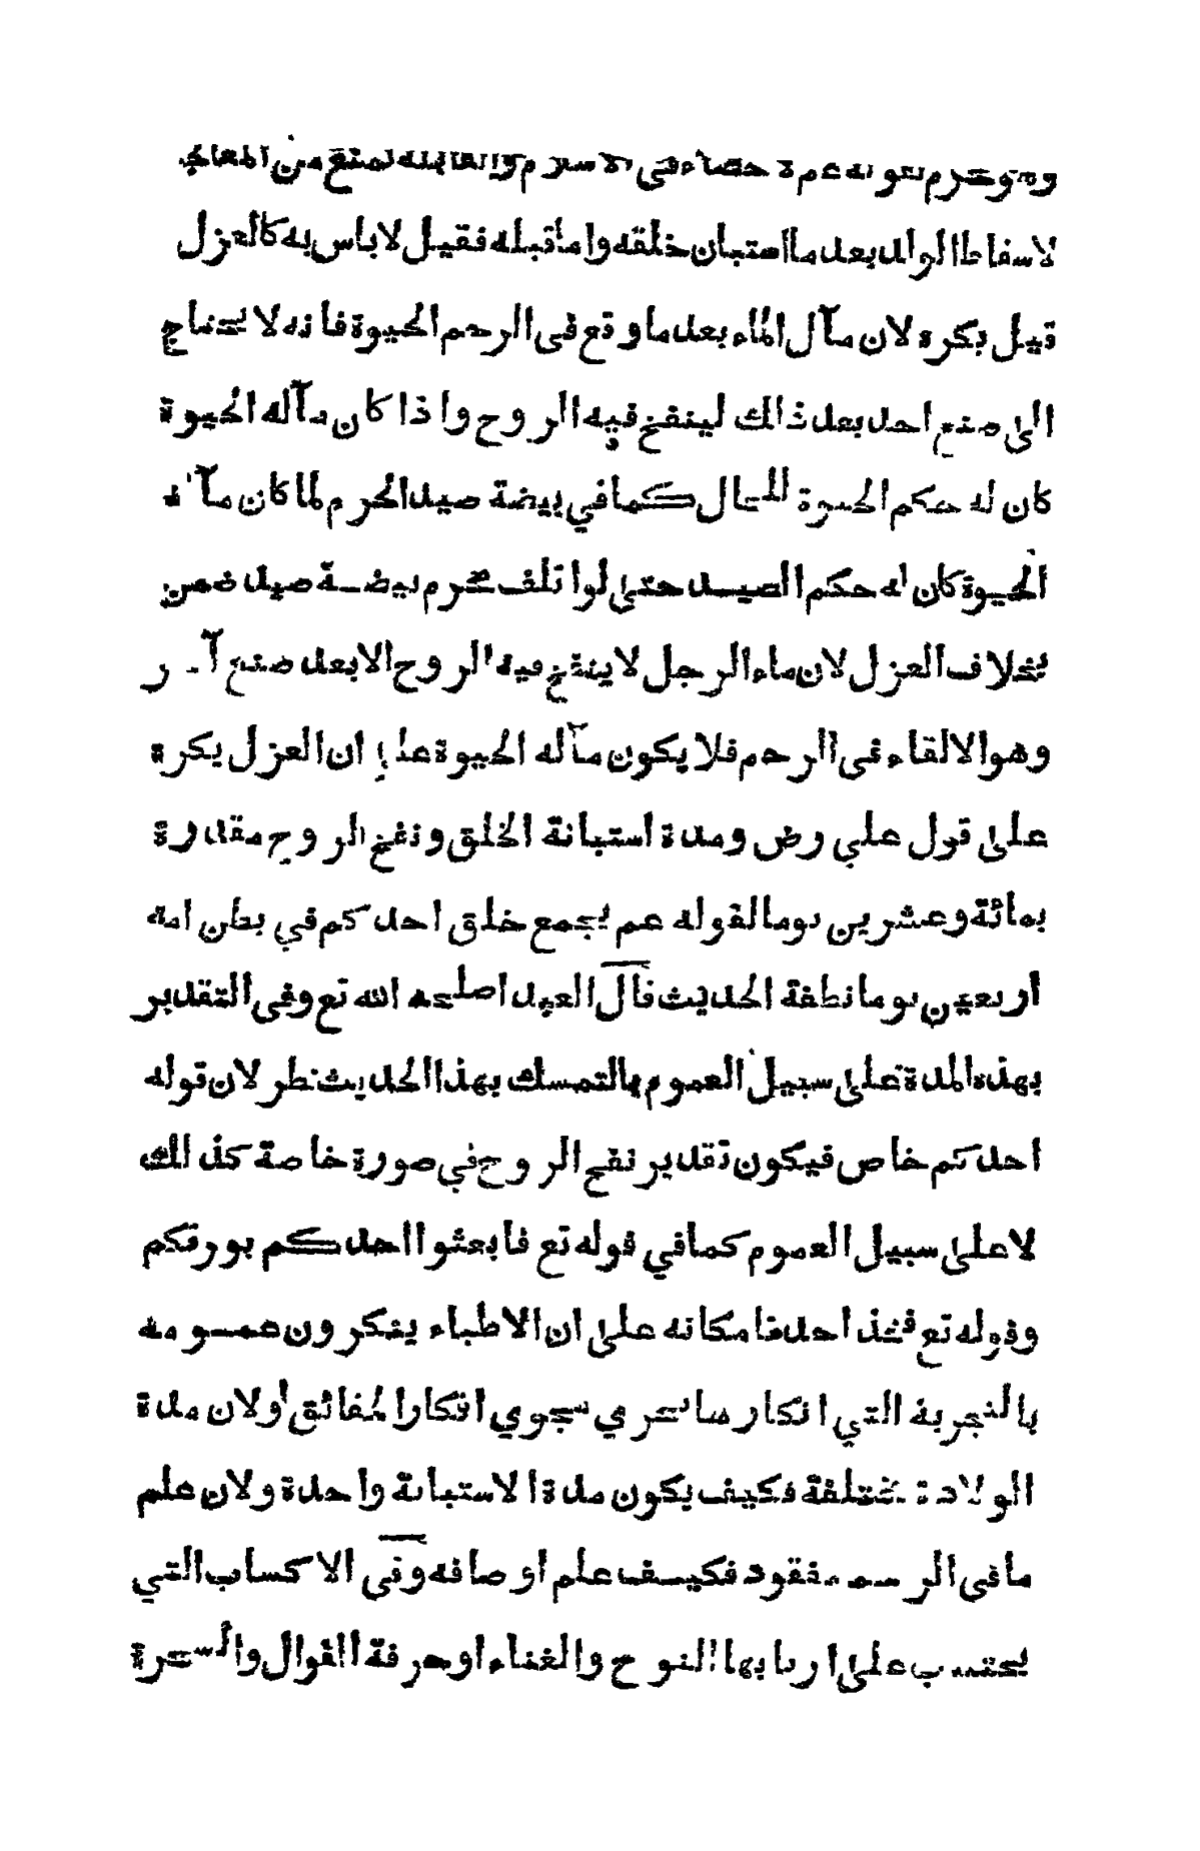 وهو محرم لقوله عم لا خصاء فى الاسلام والقابلة تمنع من المعالجة
لاسقاط الولد بعد ما استبان خلقه واما قبله فقيل لا باس به كالعزل
قيل يكره لان مآل الماء بعد ما وقع فى الرحم الحيوة فانه لا يحتاج
الى صنع احد بعد ذالك لينفخ فيه الروح واذا كان مآله الحيوة
كان له حكم الحيوة للحال كما في بيضة صيد الحرم لما كان مآله
الحيوة كان له حكم الصيد حتى لو اتلف محرم بيضة صيد ضمن
بخلاف العزل لان ماء الرجل لا ينفخ فيه الروح الا بعد صنع آخر
وهو الالقاء فى الرحم فلا يكون مآله الحيوة على ان العزل يكره
على قول علي رض ومدة استبانة الخلق ونفخ الروح مقدرة
بمائة وعشرين يوما لقوله عم يجمع خلق احدكم في بطن امه
اربعين يوما نطفة الحديث قال العبد اصلحه الله تع وفى التقدير
بهذه المدة على سبيل العموم بالتمسك بهذا الحديث نظر لان قوله
احدكم خاص فيكون تقدير نفخ الروح في صورة خاصة كذالك
لا على سبيل العموم كما في قوله تع فابعثوا احدكم بورقكم
وقوله تع فخذ احدنا مكانه على ان الاطباء ينكرون عمومه
بالتجربة التي انكارها يجري مجرى انكار الحقائق ولان مدة
الولادة مختلفة فكيف يكون مدة الاستبانة واحدة ولان علم
ما فى الرحم مفقود فكيف علم اوصافه وفى الاكساب التي
يحتسب على اربابها النوح والغناء او حرفة القوال والسحرة